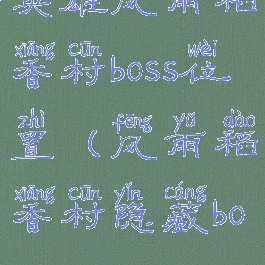 英雄风雨稻
xiāng cūn wèi
香村boss位
zhì fēng yǔ dào
置（风雨稻
xiāng cūn yǐn cáng
香村隐藏bo